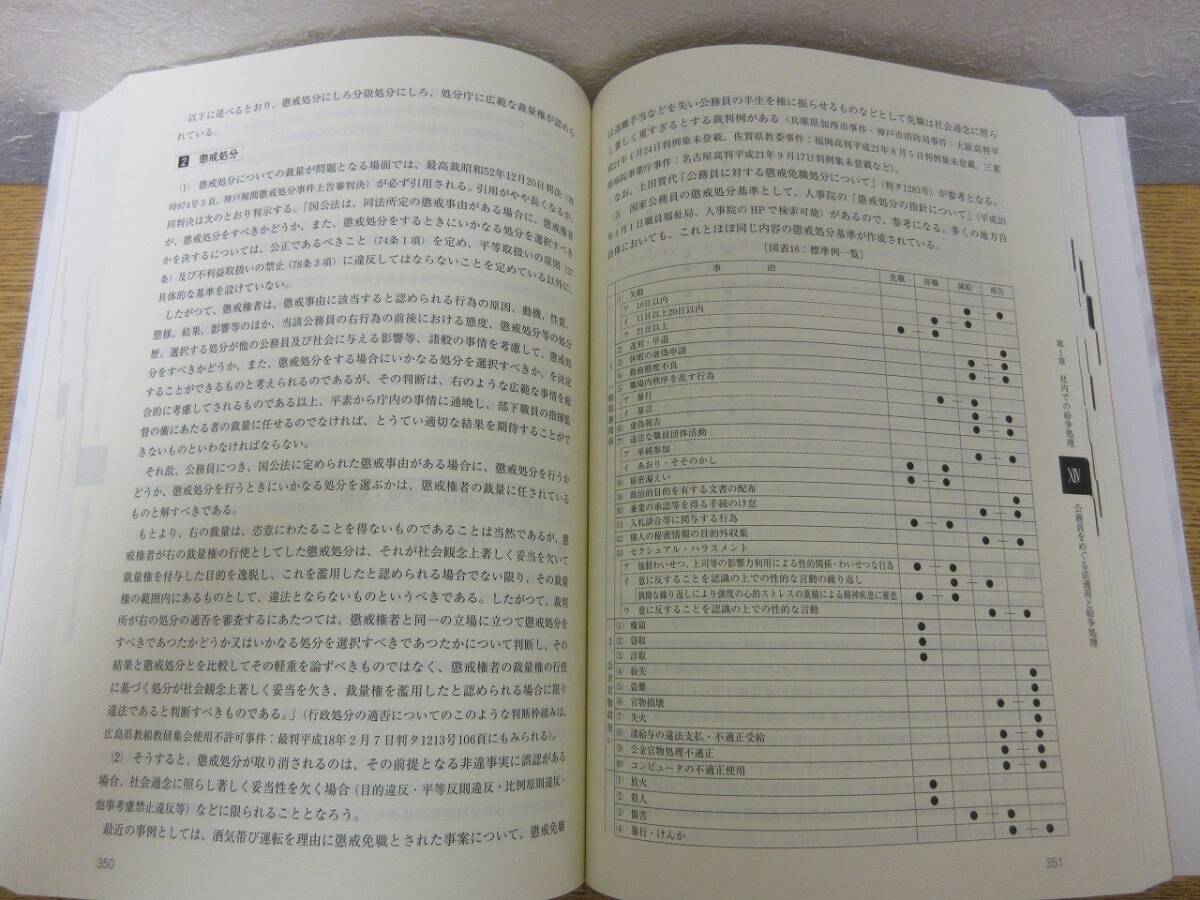 以下に述べるとおり、懲戒処分にしろ分限処分にしろ、処分庁に広範な裁量権が認めら
れている。
2 懲戒処分
(1) 懲戒処分についての裁量が問題となる場面では、最高裁昭和52年12月20日判決(判
時874号3頁、神戸税関懲戒処分事件上告審判決)が必ず引用される。引用がやや長くなるが、
同判決は次のとおり判示する。「国公法は、同法所定の懲戒事由がある場合に、懲戒権者
が、懲戒処分をすべきかどうか、また、懲戒処分をするときにいかなる処分を選択すべき
かを決するについては、公正であるべきこと(74条1項)を定め、平等取扱いの原則(27
条)及び不利益取扱いの禁止(78条3項)に違反してはならないことを定めている以外に、
具体的な基準を設けていない。
したがつて、懲戒権者は、懲戒事由に該当すると認められる行為の原因、動機、性質、
態様、結果、影響等のほか、当該公務員の右行為の前後における態度、懲戒処分等の処分
歴、選択する処分が他の公務員及び社会に与える影響等、諸般の事情を考慮して、懲戒処
分をすべきかどうか、また、懲戒処分をする場合にいかなる処分を選択すべきか、を決定
することができるものと考えられるのであるが、その判断は、右のような広範な事情を総
合的に考慮してされるものである以上、平素から庁内の事情に通暁し、部下職員の指揮監
督の衝にあたる者の裁量に任せるのでなければ、とうてい適切な結果を期待することがで
きないものといわなければならない。
それ故、公務員につき、国公法に定められた懲戒事由がある場合に、懲戒処分を行うか
どうか、懲戒処分を行うときにいかなる処分を選ぶかは、懲戒権者の裁量に任されている
ものと解すべきである。
もとより、右の裁量は、恣意にわたることを得ないものであることは当然であるが、懲
戒権者が右の裁量権の行使としてした懲戒処分は、それが社会観念上著しく妥当を欠いて
裁量権を付与した目的を逸脱し、これを濫用したと認められる場合でない限り、その裁量
権の範囲内にあるものとして、違法とならないものというべきである。したがつて、裁判
所が右の処分の適否を審査するにあたつては、懲戒権者と同一の立場に立つて懲戒処分を
すべきであつたかどうか又はいかなる処分を選択すべきであつたかについて判断し、その
結果と懲戒処分とを比較してその軽重を論ずべきものではなく、懲戒権者の裁量権の行使
に基づく処分が社会観念上著しく妥当を欠き、裁量権を濫用したと認められる場合に限り
違法であると判断すべきものである。」(行政処分の適否についてのこのような判断枠組みは、
広島県教組教研集会使用不許可事件:最判平成18年2月7日判タ1213号106頁にもみられる)。
(2) そうすると、懲戒処分が取り消されるのは、その前提となる非違事実に誤認がある
場合、社会通念に照らし著しく妥当性を欠く場合(目的違反・平等反則違反・比例原則違反・
他事考慮禁止違反等)などに限られることとなろう。
最近の事例としては、酒気帯び運転を理由に懲戒免職とされた事案について、懲戒免職
350
は退職手当などを失い公務員の半生を棒に振らせるものなどとして免職は社会通念に照ら
し著しく重すぎるとする裁判例がある(兵庫県加西市事件・神戸市消防局事件:大阪高判平
成21年4月24日判例集未登載、佐賀県教委事件:福岡高判平成21年8月5日判例集未登載、三重
県病院事業庁事件:名古屋高判平成21年9月17日判例集未登載など)。
なお、上田賀代「公務員に対する懲戒免職処分について」(判タ1283号)が参考となる。
(3) 国家公務員の懲戒処分基準として、人事院の「懲戒処分の指針について」(平成20
年4月1日職員福祉局、人事院のHPで検索可能)があるので、参考になる。多くの地方自
治体においても、これとほぼ同じ内容の懲戒処分基準が作成されている。
[図表16:標準例一覧]
事由 免職 停職 減給 戒告
1 一般服務関係
(1) 欠勤
ア 10日以内 ● ─ ●
イ 11日以上20日以内 ● ─ ●
ウ 21日以上 ● ─ ●
(2) 遅刻・早退 ●
(3) 休暇の虚偽申請 ● ─ ●
(4) 勤務態度不良 ● ─ ●
(5) 職場内秩序を乱す行為
ア 暴行 ● ─ ●
イ 暴言 ● ─ ●
(6) 虚偽報告 ● ─ ●
(7) 違法な職員団体活動
ア 単純参加 ● ─ ●
イ あおり・そそのかし ● ─ ●
(8) 秘密漏えい ● ─ ●
(9) 政治的目的を有する文書の配布 ●
(10) 兼業の承認等を得る手続のけ怠 ● ─ ●
(11) 入札談合等に関与する行為 ● ─ ●
(12) 個人の秘密情報の目的外収集 ● ─ ●
(13) セクシュアル・ハラスメント
ア 強制わいせつ、上司等の影響力利用による性的関係・わいせつな行為 ● ─ ●
イ 意に反することを認識の上での性的な言動の繰り返し ● ─ ●
執拗な繰り返しにより強度の心的ストレスの重積による精神疾患に罹患 ● ─ ●
ウ 意に反することを認識の上での性的な言動 ● ─ ●
2 公金官物取扱い
(1) 横領 ●
(2) 窃取 ●
(3) 詐取 ●
(4) 紛失 ●
(5) 盗難 ●
(6) 官物損壊 ● ─ ●
(7) 失火 ●
(8) 諸給与の違法支払・不適正受給 ● ─ ●
(9) 公金官物処理不適正 ● ─ ●
(10) コンピュータの不適正使用 ● ─ ●
(1) 放火 ●
(2) 殺人 ●
(3) 傷害 ● ─ ●
(4) 暴行・けんか ● ─ ●
第1章 社内での紛争処理
XIV
公務員をめぐる法適用と紛争処理
351